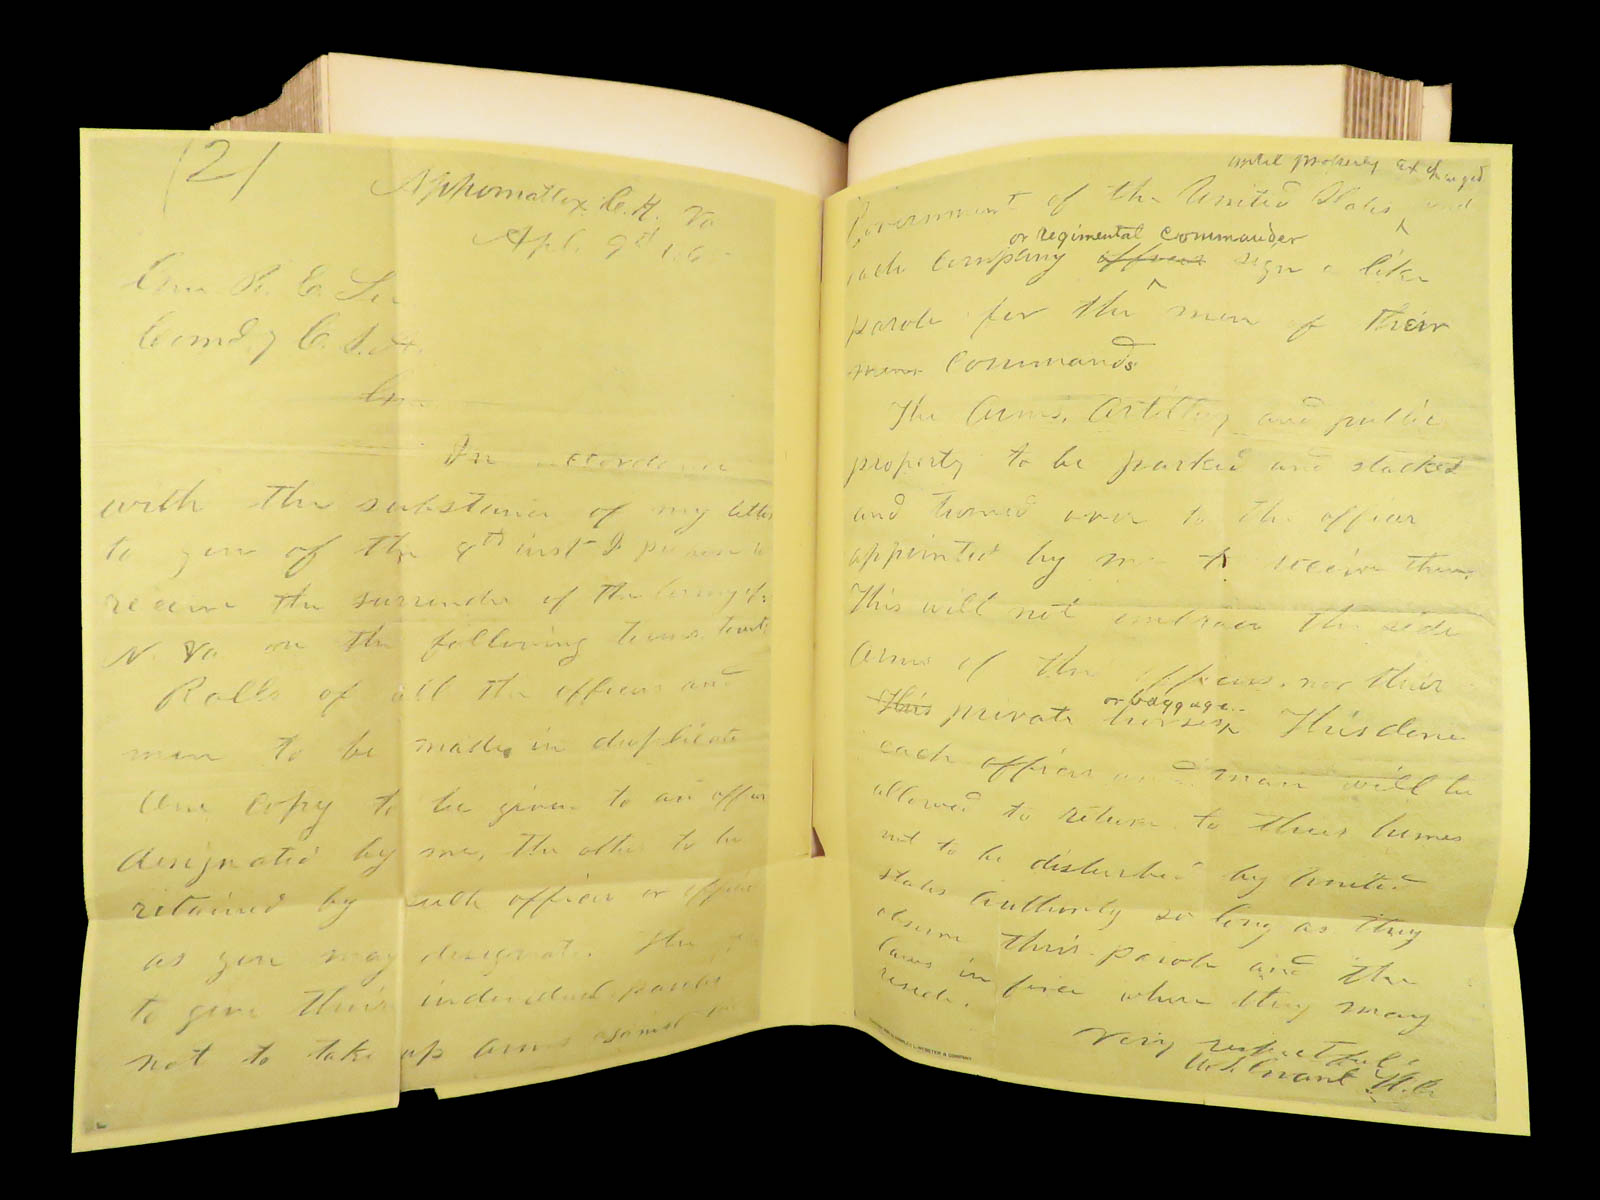 (2)
Appomattox C.H. Va
Apl. 9th 1865
Gen R. E. Lee
Comdg C.S.A.
Gen
In accordance
with the substance of my letter
to you of the 8th inst I propose to
receive the surrender of the Army of
N. Va on the following terms towit:
Rolls of all the officers and
men to be made in duplicate
One copy to be given to an officer
designated by me, the other to be
retained by such officer or officers
as you may designate. The
to give their individual paroles
not to take up arms against the
until properly exchanged
Government of the United States and
or regimental commander
each company officer sign a like
parole for the men of their
commands
The Arms, Artillery and public
property to be parked and stacked
and turned over to the officer
appointed by me to receive them.
This will not embrace the side
arms of the officers, nor their
or baggage.
This private horses This done
each officer and man will be
allowed to return to their homes
not to be disturbed by United
States Authority so long as they
observe their parole and the
laws in force where they may
reside.
Very respectfully
U.S. Grant Lt. Gn
L. WEBSTER & COMPANY